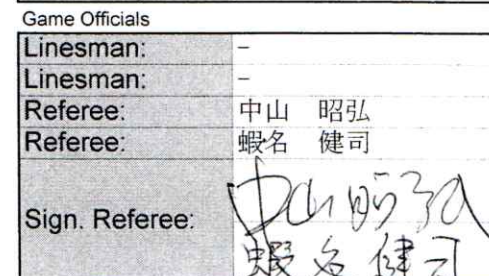 Game Officials
Linesman: -
Linesman: -
Referee: 中山 昭弘
Referee: 蝦名 健司
Sign. Referee: 中山昭弘
蝦名健司